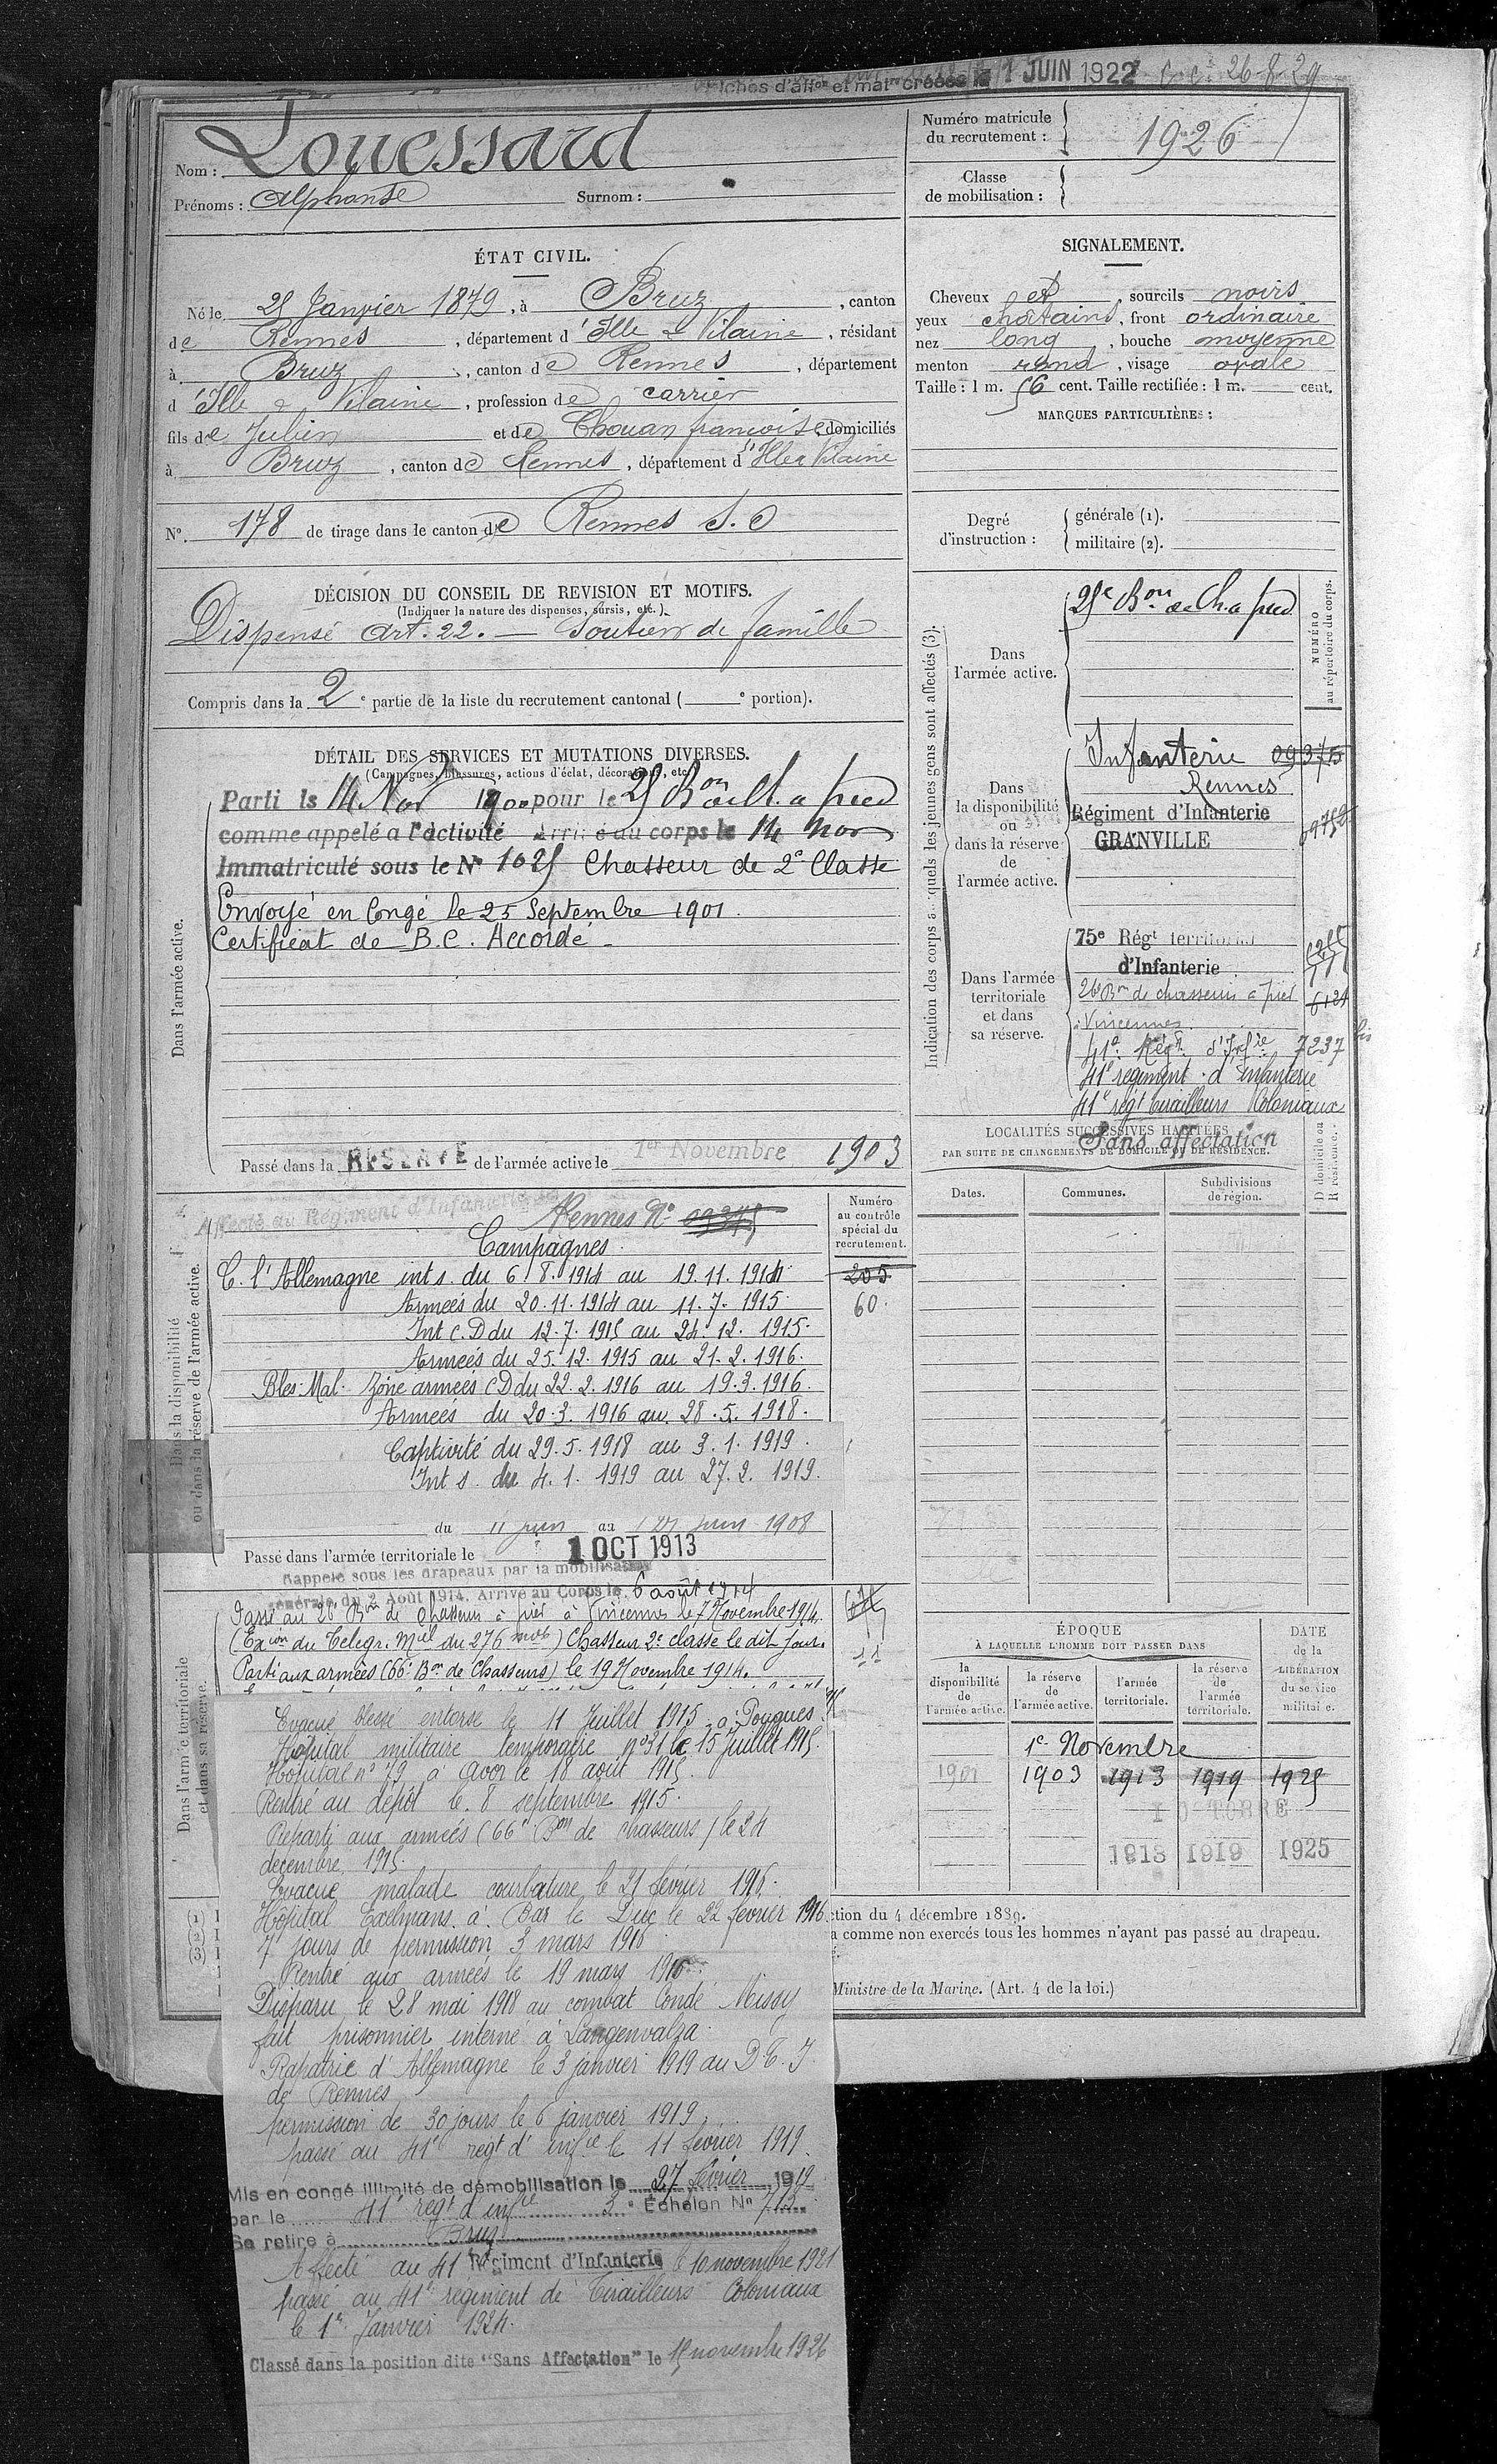 Fiches d'aff^on et mat^re créées le 1 JUIN 1922 26-8-29
Nom : Louessard
Prénoms : Alphonse Surnom :
Numéro matricule
du recrutement : 1926
Classe
de mobilisation :
ÉTAT CIVIL.
Né le 25 Janvier 1879, à Bruz, canton
de Rennes, département d'Ille & Vilaine, résidant
à Bruz, canton de Rennes, département
d'Ille & Vilaine, profession de carrier
fils de Julien et de Chouan françoise, domiciliés
à Bruz, canton de Rennes, département d'Ille & Vilaine
N° 178 de tirage dans le canton de Rennes S. O
SIGNALEMENT.
Cheveux et, sourcils noirs
yeux châtains, front ordinaire
nez long, bouche moyenne
menton rond, visage ovale
Taille : 1 m. 56 cent. Taille rectifiée : 1 m. cent.
MARQUES PARTICULIÈRES :
Degré
d'instruction :
générale (1).
militaire (2).
DÉCISION DU CONSEIL DE REVISION ET MOTIFS.
(Indiquer la nature des dispenses, sursis, etc.)
Dispensé Art. 22. — Soutien de famille
Compris dans la 2e partie de la liste du recrutement cantonal ( e portion).
DÉTAIL DES SERVICES ET MUTATIONS DIVERSES.
(Campagnes, blessures, actions d'éclat, décorations, etc.)
Dans l'armée active.
Parti le 14 Nov 1900 pour le 25 Bon de Ch. a pied
comme appelé a l'activité Arrivé au corps le 14 nov
Immatriculé sous le N° 1025 Chasseur de 2e Classe
Envoyé en Congé le 25 Septembre 1901.
Certificat de B.C. Accordé
Passé dans la RESERVE de l'armée active le 1er Novembre 1903
Indication des corps auxquels les jeunes gens sont affectés (3).
NUMÉRO
au répertoire du corps.
Dans
l'armée active.
25e Bon de Ch. a pied
Dans
la disponibilité
ou
dans la réserve
de
l'armée active.
Infanterie 09375
Rennes
Régiment d'Infanterie
GRANVILLE
Dans l'armée
territoriale
et dans
sa réserve.
75e Régt territorial
d'Infanterie
26e Bon de chasseurs à pied 6121
à Vincennes
41e Régt d'Infie 7237 bis
41e regiment d'infanterie
41e régt tirailleurs Coloniaux
Sans affectation
LOCALITÉS SUCCESSIVES HABITÉES
PAR SUITE DE CHANGEMENTS DE DOMICILE OU DE RÉSIDENCE.
Dates. Communes. Subdivisions
de région.
D domicile ou
R résidence.
Dans la disponibilité
ou dans la réserve de l'armée active.
Affecté au Régiment d'Infanterie de
Rennes N° 09375
Numéro
au contrôle
spécial du
recrutement.
205
60.
Campagnes.
C. l'Allemagne int s. du 6. 8. 1914 au 19. 11. 1914
Armées du 20. 11. 1914 au 11. 7. 1915.
Int C.D du 12. 7. 1915 au 24. 12. 1915.
Armées du 25. 12. 1915 au 21. 2. 1916.
Bles. Mal. Zône armées CD du 22. 2. 1916 au 19. 3. 1916.
Armées du 20. 3. 1916 au 28. 5. 1918.
Captivité du 29. 5. 1918 au 3. 1. 1919.
Int s. du 4. 1. 1919 au 27. 2. 1919.
du 11 juin au 27 juin 1908
Passé dans l'armée territoriale le 1 OCT 1913
Dans l'armée territoriale
et dans sa réserve.
Rappelé sous les drapeaux par la mobilisation
générale du 2 Août 1914. Arrivé au Corps le 6 août 1914
Passé au 26e Bon de Chasseurs à pied à Vincennes le 7 Novembre 1914.
(Exion du Télégr. Miel du 276 mob) Chasseur 2e classe le dit jour.
Parti aux armées (66e Bon de Chasseurs) le 19 Novembre 1914.
Evacué blessé entorse le 11 Juillet 1915 à Pougues
Hôpital militaire temporaire n° 31 le 15 Juillet 1915.
Hôpital n° 79 à Avor le 18 août 1915.
Rentré au dépôt le 8 septembre 1915.
Reparti aux armées (66e Bon de chasseurs) le 24
décembre 1915.
Evacué malade courbature le 21 février 1916.
Hôpital Exelmans à Bar le Duc le 22 février 1916
7 jours de permission 3 mars 1916
Rentré aux armées le 19 mars 1916.
Disparu le 28 mai 1918 au combat Condé Missy
fait prisonnier interné à Langenvalza.
Rapatrié d'Allemagne le 3 janvier 1919 au D.T.I.
de Rennes
permission de 30 jours le 6 janvier 1919.
passé au 41e regt d'infie le 11 février 1919.
Mis en congé illimité de démobilisation le 27 février 1919
par le 41e regt d'infie 3e Échelon N° 713
Se retire à Bruz
Affecté au 41 Régiment d'Infanterie le 10 novembre 1921
passé au 41e regiment de Tirailleurs Coloniaux
le 1er Janvier 1924.
Classé dans la position dite "Sans Affectation" le 15 novembre 1926
ÉPOQUE
À LAQUELLE L'HOMME DOIT PASSER DANS
DATE
de la
LIBÉRATION
du service
militaire.
la
disponibilité
de
l'armée active.
la réserve
de
l'armée active.
l'armée
territoriale.
la réserve
de
l'armée
territoriale.
1er Novembre
1901 1903 1913 1919 1925
1 OCTOBRE
1913 1919 1925
ction du 4 décembre 1889.
a comme non exercés tous les hommes n'ayant pas passé au drapeau.
Ministre de la Marine. (Art. 4 de la loi.)